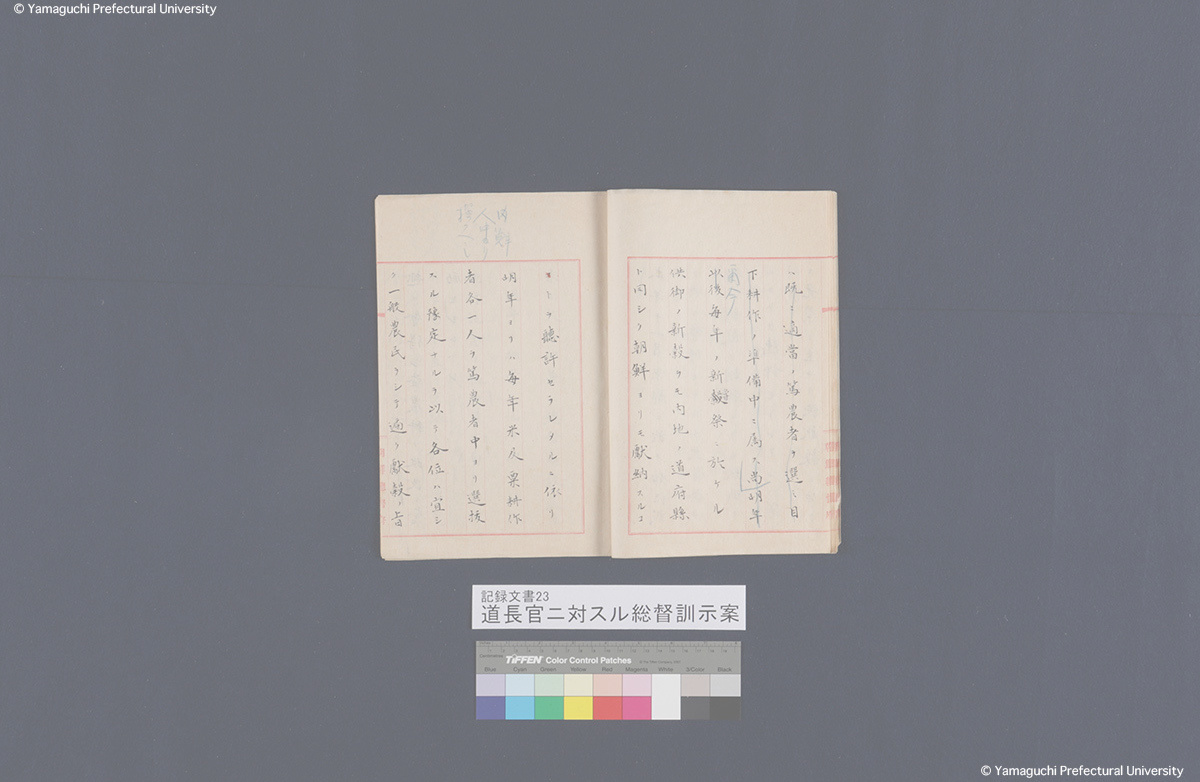 © Yamaguchi Prefectural University
ハ既ニ適當ノ篤農者ヲ選ミ目
下耕作ノ準備中ニ属ス尚明年
爾今
以後毎年ノ新穀祭ニ於ケル
供御ノ新穀ヲモ内地ノ道府縣
ト同シク朝鮮ヨリモ献納スルコ
トヲ聴許セラレタルニ依リ
明年ヨリハ毎年米及粟耕作
者各一人ヲ篤農者中ヨリ選抜
スル豫定ナルヲ以テ各位ハ宜シ
ク一般農民ヲシテ遍ク献穀ノ旨
記録文書23
道長官ニ対スル総督訓示案
TIFFEN Color Control Patches
Blue Cyan Green Yellow Red Magenta White 3/Color Black
© Yamaguchi Prefectural University